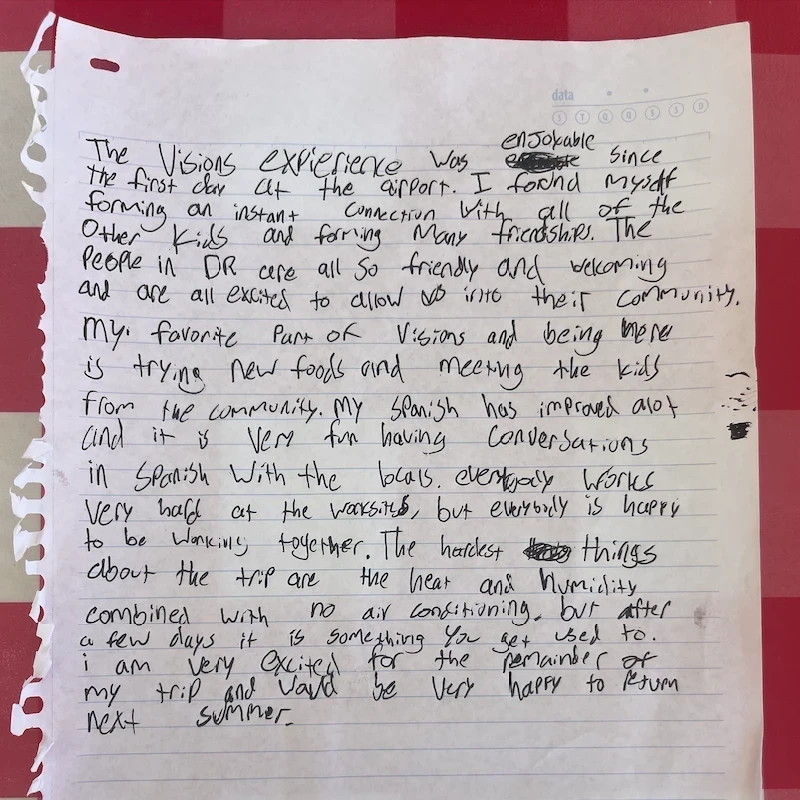 data
S T Q Q S S D
The Visions expierience was enjokable since
the first day at the airport. I found myself
forming an instant connection with all of the
other kids and forming many friendships. The
People in DR are all so friendly and welcoming
and are all excited to allow us into their community.
My favorite part of Visions and being here
is trying new foods and meeting the kids
from the community. My Spanish has improved alot
and it is very fun having conversations
in Spanish with the locals. everybody works
very hard at the worksites, but everybody is happy
to be working together. The hardest things
about the trip are the heat and humidity
combined with no air conditioning, but after
a few days it is something you get used to.
i am very excited for the remainder of
my trip and would be very happy to return
next summer.